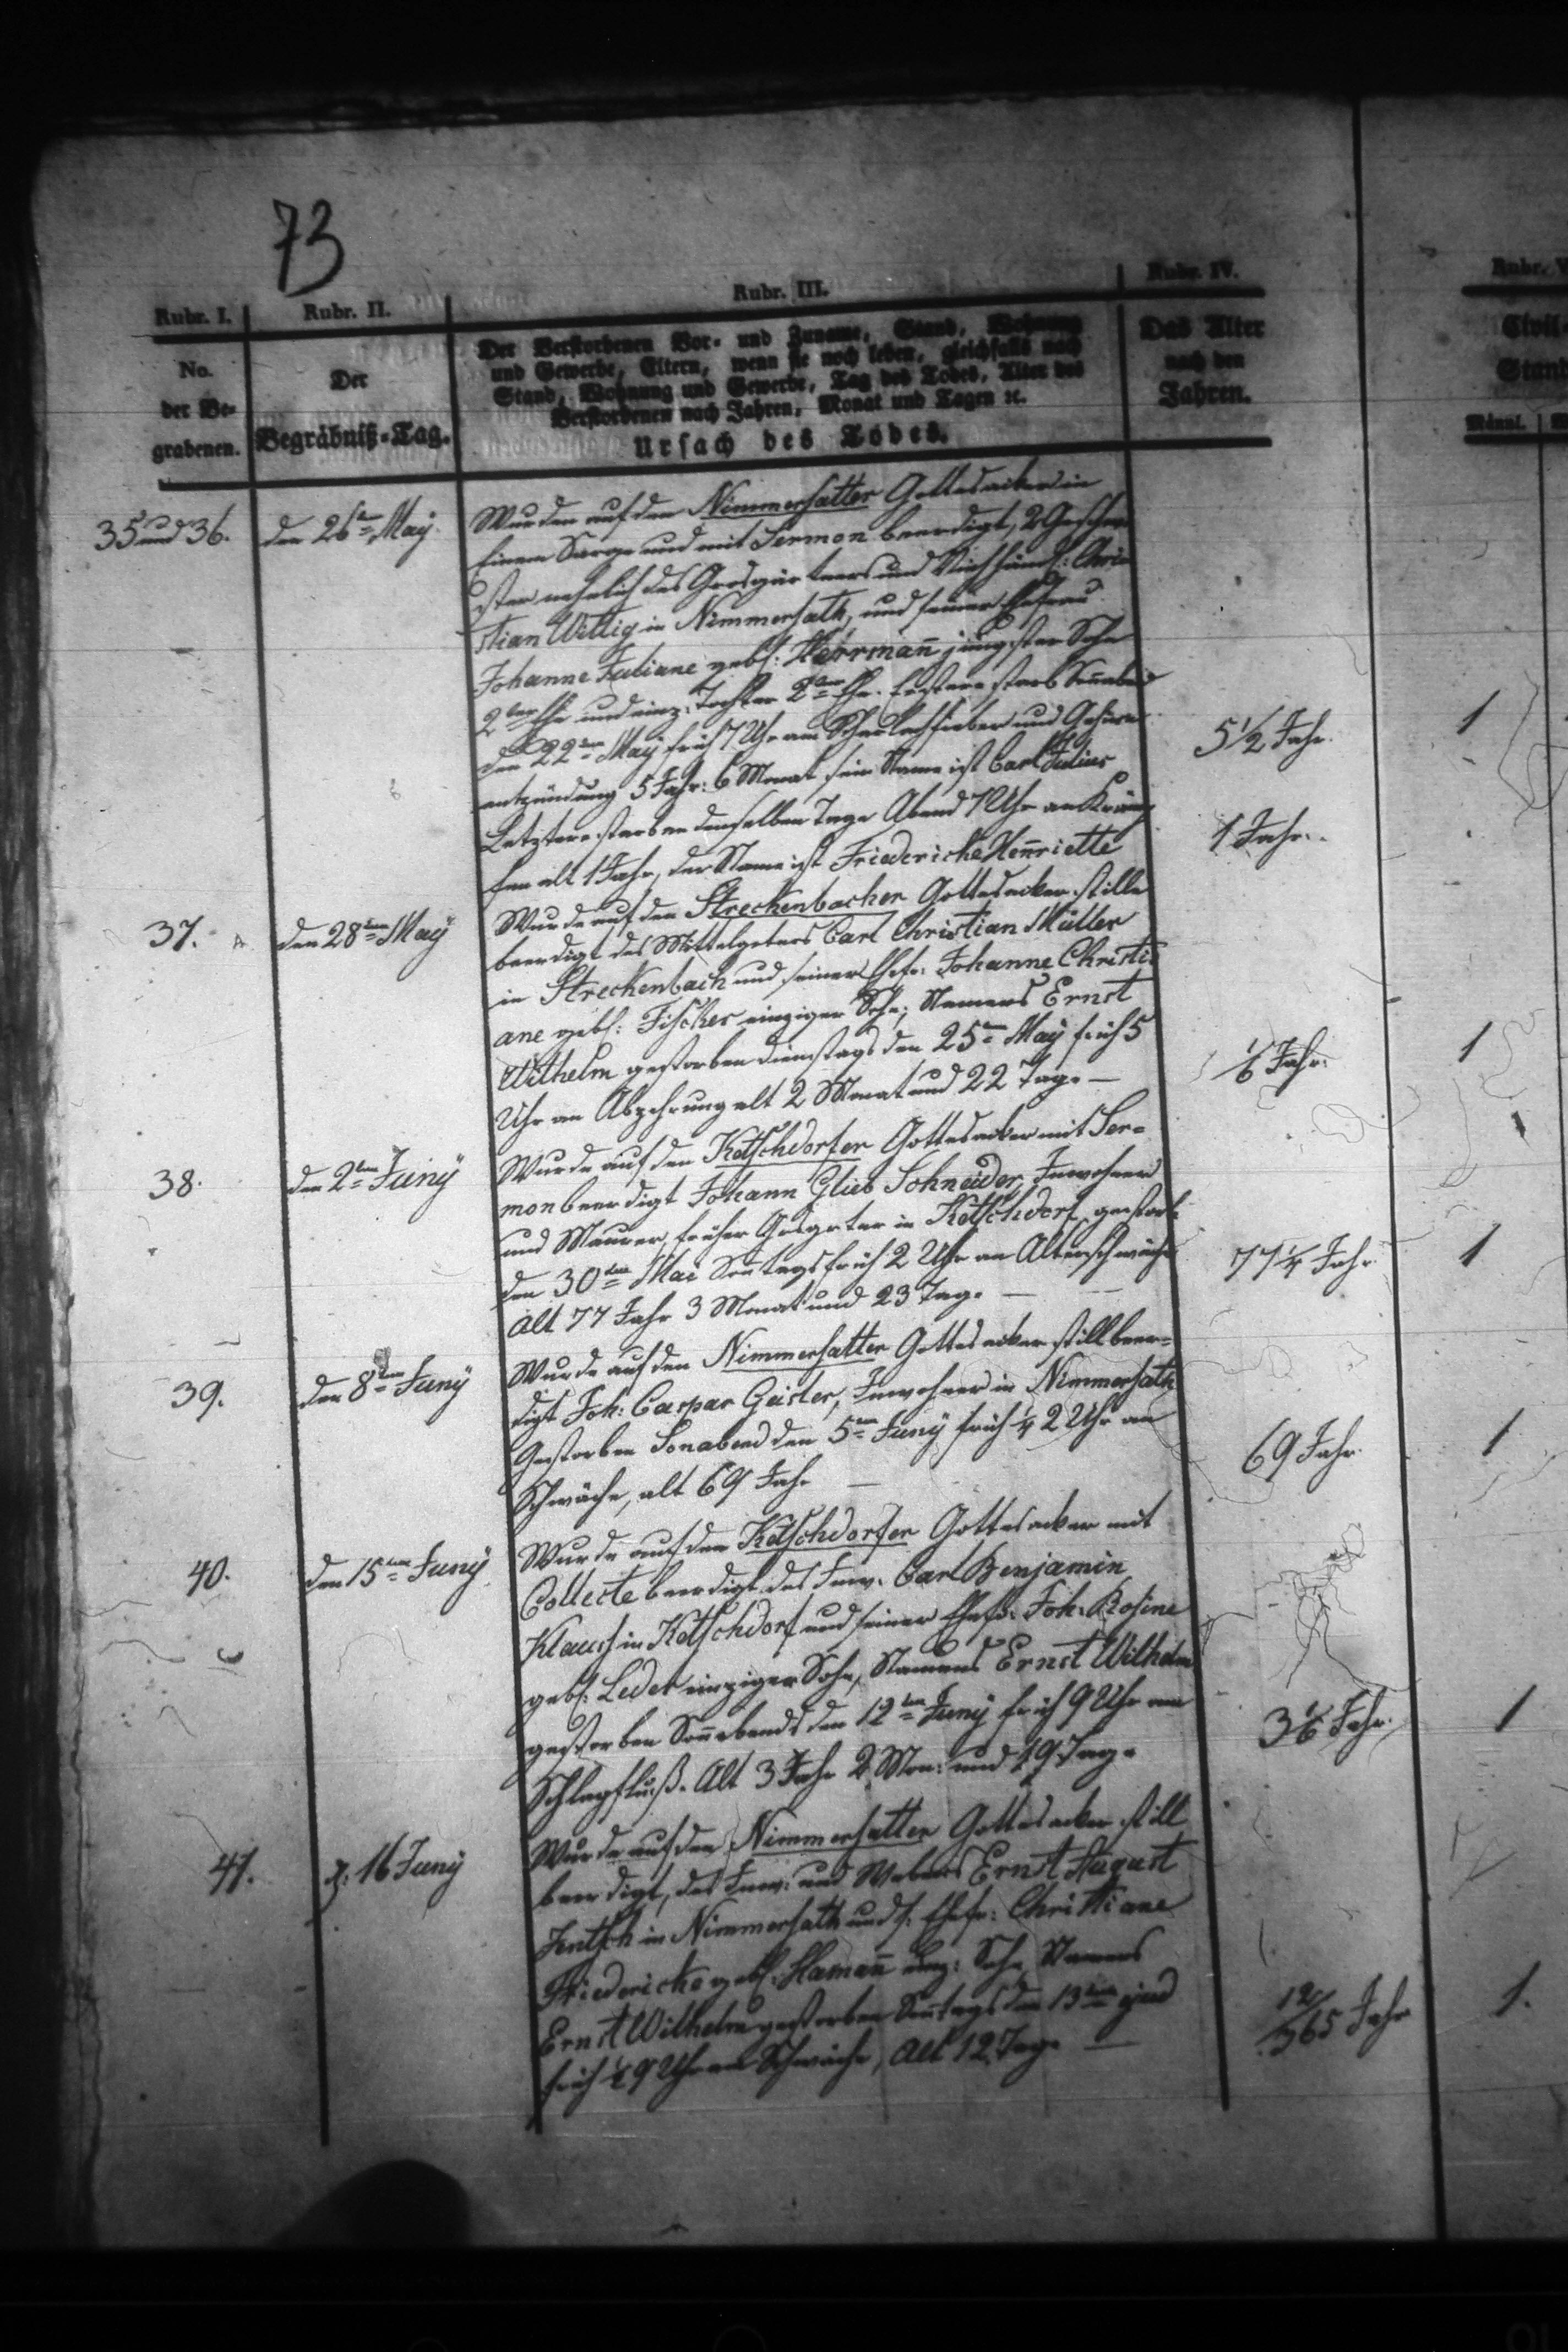 73
Rubr. I.
Rubr. II.
Rubr. III.
Rubr. IV.
Rubr. V
No.
der Be-
grabenen.
Der
Begräbniß-Tag.
Der Verstorbenen Vor- und Zuname, Stand, Wohnung
und Gewerbe, Eltern, wenn sie noch leben, gleichfalls nach
Stand, Wohnung und Gewerbe, Tag des Todes, Alter des
Verstorbenen nach Jahren, Monat und Tagen ꝛc.
Ursach des Todes.
Das Alter
nach den
Jahren.
Civil-
Stand
Männl.
35 und 36.
den 26ten May.
Wurden auf den Nimmersatter Gottesacker in
Einem Sarge und mit Sermon beerdigt, 2 Geschwi
ster nehmlich des Grosgärtners und Viehhändl: Chri
stian Wittig in Nimmersath, und seiner Ehefrau
Johanne Juliane geb: Herrman̄ jüngster Sohn
2ter Ehe und einz. Tochter 2ter Ehe. Erstere starb Son̄abend
den 22ten May früh 7 Uhr am Scharlachfieber und Gehirn
entzündung 5 Jahr: 6 Monat sein Name ist Carl Julius
Letztere starb an demselben Tage Abend 7 Uhr an Kräm
fen alt 1 Jahr, der Name ist Friedericke Hen̄riette
5 1/2 Jahr.
1
1 Jahr.
37.
den 28ten May
Wurde auf den Streckenbacher Gottesacker stille
beerdigt des Mittelgeters Carl Christian Müller
in Streckenbach und seiner Ehefr: Johanne Christi
ane geb: Fischer einziger Sohn; Namens Ernst
Wilhelm gestorben Dienstags den 25ten May früh 5
Uhr an Abzehrung alt 2 Monat und 22 Tage —
1/6 Jahr:
1
38.
den 2ten Juny
Wurde auf den Ketschdorfer Gottesacker mit Ser=
mon beerdigt Johann Glieb Schneider, Inwohner
und Maurer, früher Gosgeter in Ketschdorf gestorb:
den 30ten Mai Son̄tags früh 2 Uhr an Altersschwäche
Alt 77 Jahr 3 Monat und 23 Tage —
77 1/4 Jahr
1
39.
den 8ten Juny
Wurde auf den Nimmersatter Gottesacker still beer=
digt Joh: Caspar Geisler, Inwohner in Nimmersath
Gestorben Sonabend den 5ten Juny früh 1/4 2 Uhr an
Schwäche, alt 69 Jahr —
69 Jahr
1
40.
den 15ten Juny
Wurde auf den Ketschdorfer Gottesacker mit
Collecte beerdigt des Inw: Carl Benjamin
Klaus in Ketschdorf und seiner Ehefr: Joh: Rosine
geb: Leder einziger Sohn, Namens Ernst Wilhelm
gestorben Son̄abends den 12ten Juny früh 9 Uhr am
Schlagfluß. Alt 3 Jahr 2 Mon: und 19 Tage
3 1/6 Jahr.
1
41.
d: 16 Juny
Wurde auf den Nimmersatter Gottesacker still
beerdigt, des Inw: und Webers Ernst August
Jentsch in Nimmersath und s: Ehefr: Christiane
Friedericke geb: Haman̄ einz: Sohn, Namens
Ernst Wilhelm gestorben Son̄tags den 13ten
früh 1/2 9 Uhr an Schwäche, Alt 12 Tage —
12/365 Jahr
1.